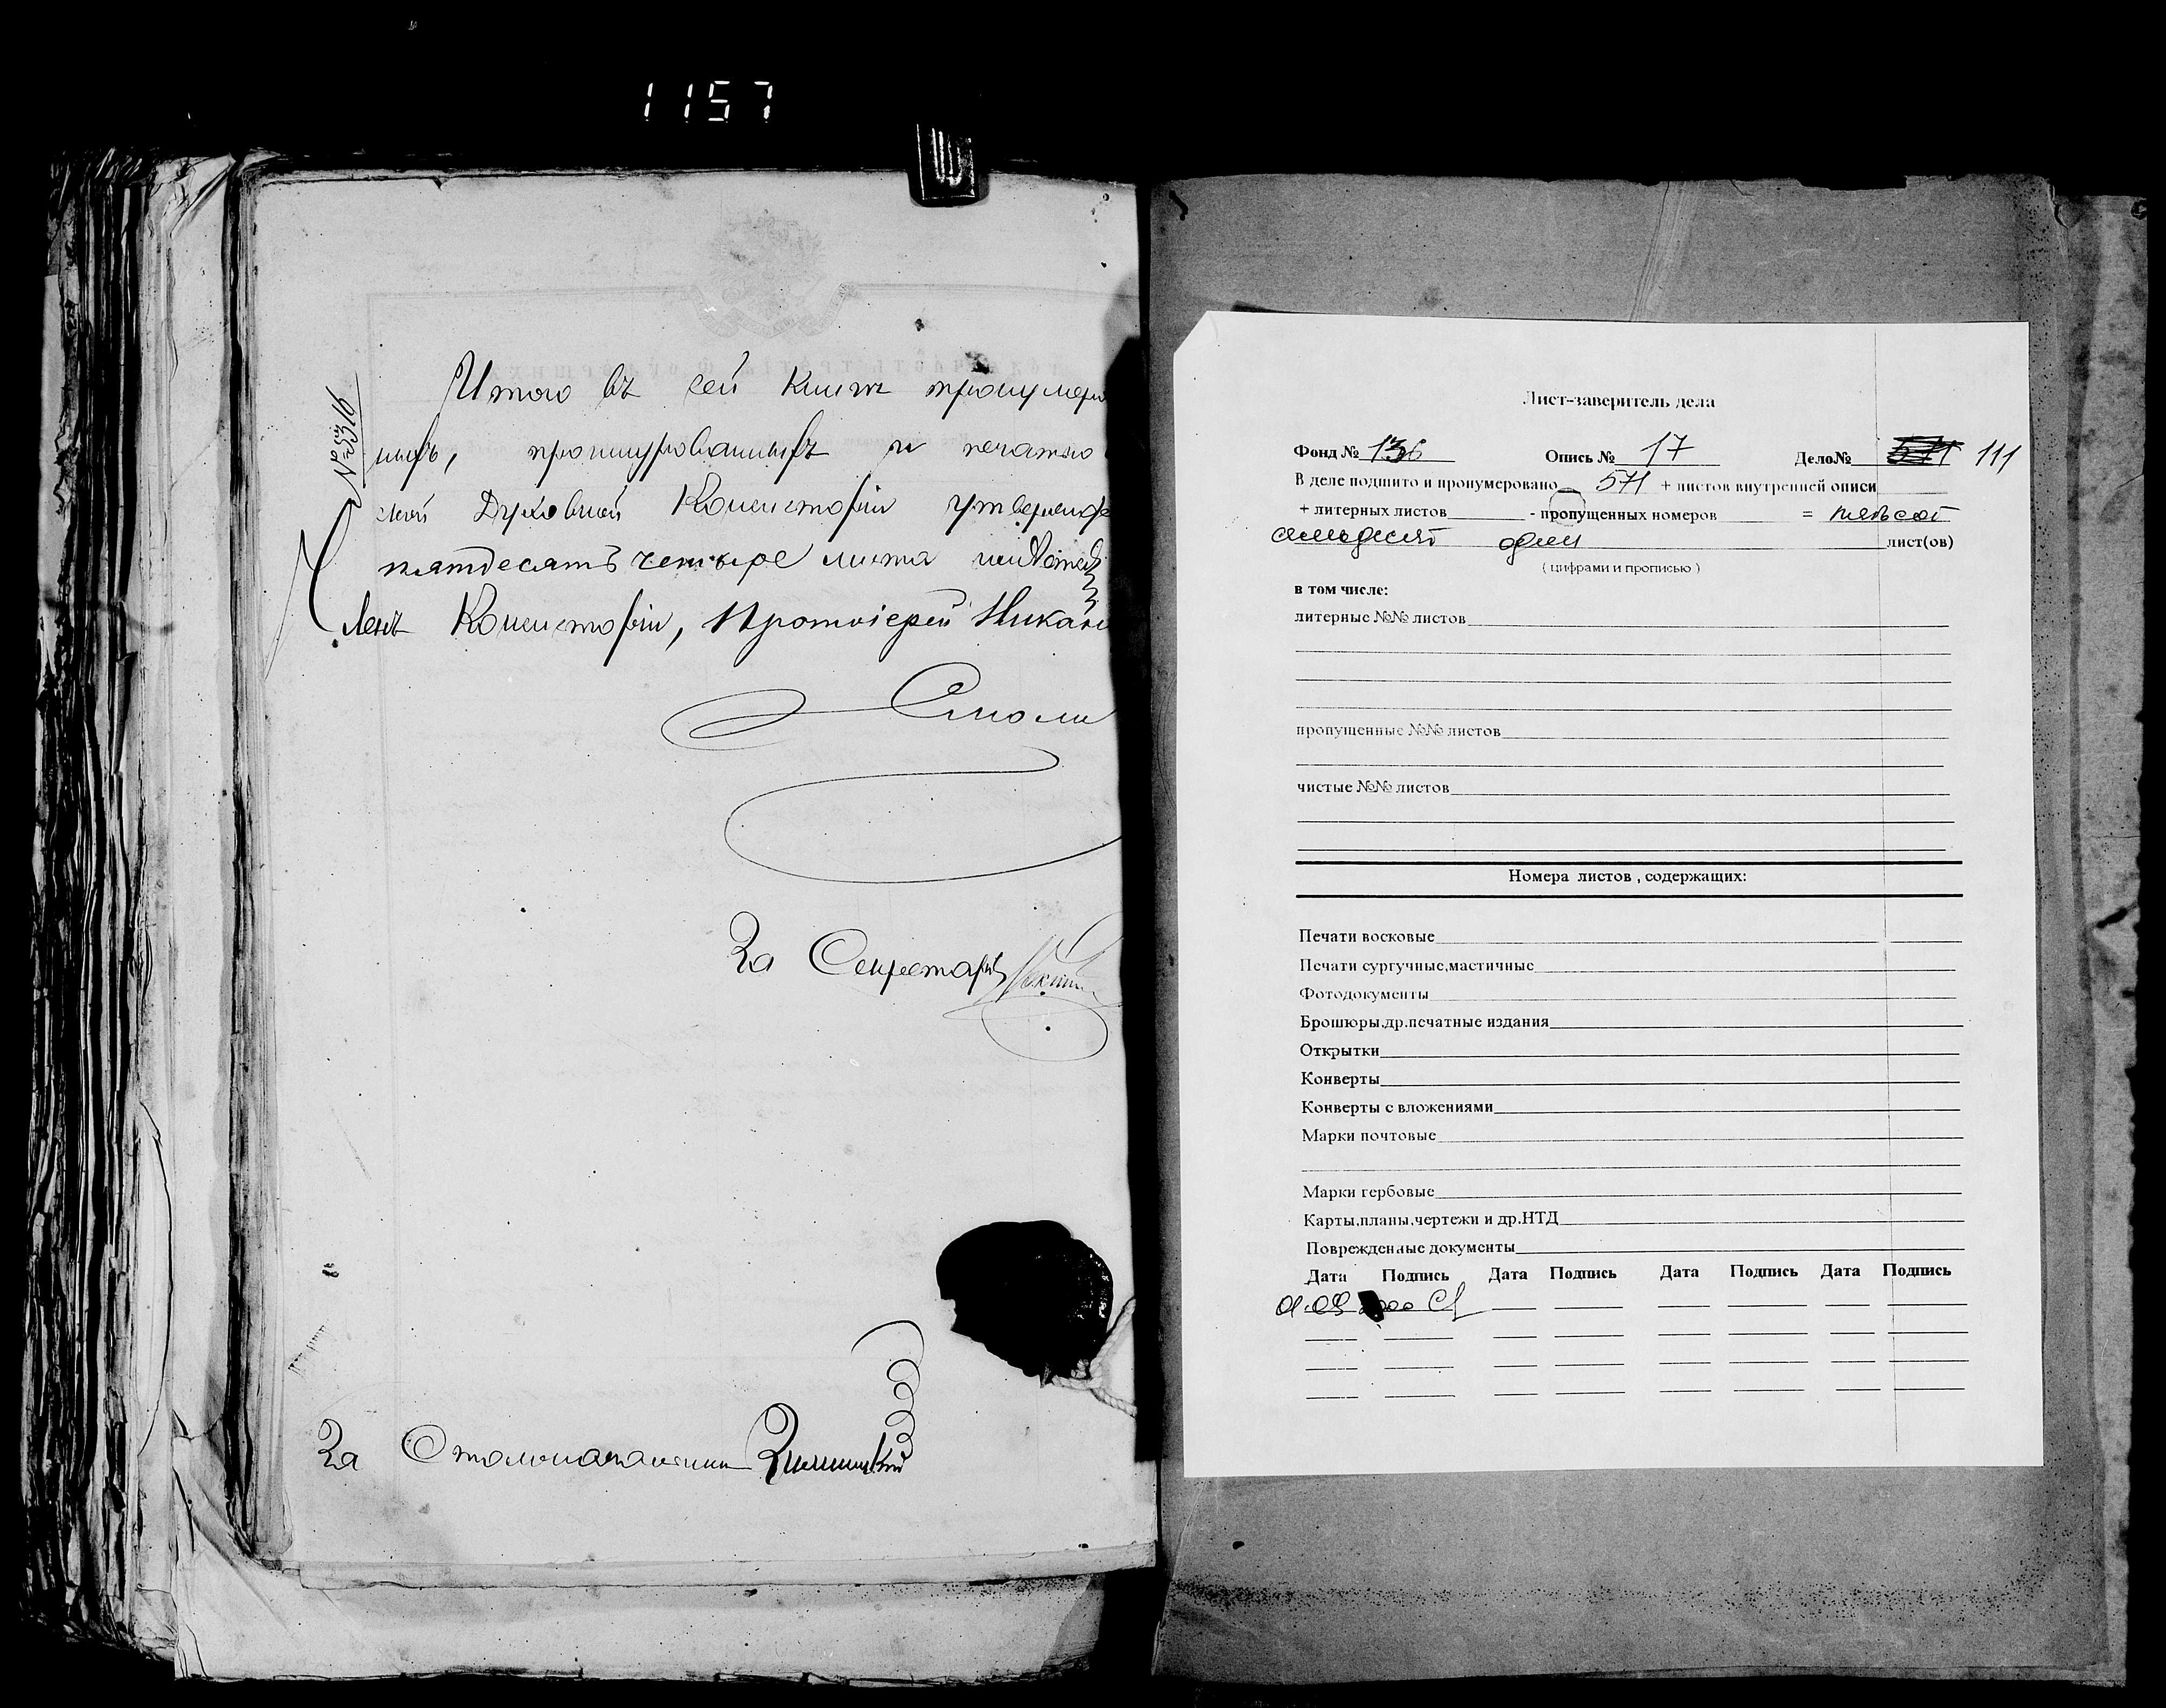 1157
№ 2316
Итого въ сей книгѣ пронумеро
ныхъ, прошнурованныхъ и печатью
ской Духовной Консисторіи утвержд
пятдесятъ четыре листа
Членъ Консисторіи, Протоіерей Никан
Смоли
За Секретаря
За Столоначальника
Лист-заверитель дела
Фонд № 136 Опись № 17 Дело№ 571 111
В деле подшито и пронумеровано 571 + листов внутренней описи
+ литерных листов - пропущенных номеров = пятьсот
семьдесят один лист(ов)
( цифрами и прописью )
в том числе:
литерные №№ листов
пропущенные №№ листов
чистые №№ листов
Номера листов , содержащих:
Печати восковые
Печати сургучные,мастичные
Фотодокументы
Брошюры,др.печатные издания
Открытки
Конверты
Конверты с вложениями
Марки почтовые
Марки гербовые
Карты,планы,чертежи и др.НТД
Поврежденные документы
Дата Подпись Дата Подпись Дата Подпись Дата Подпись
01.09